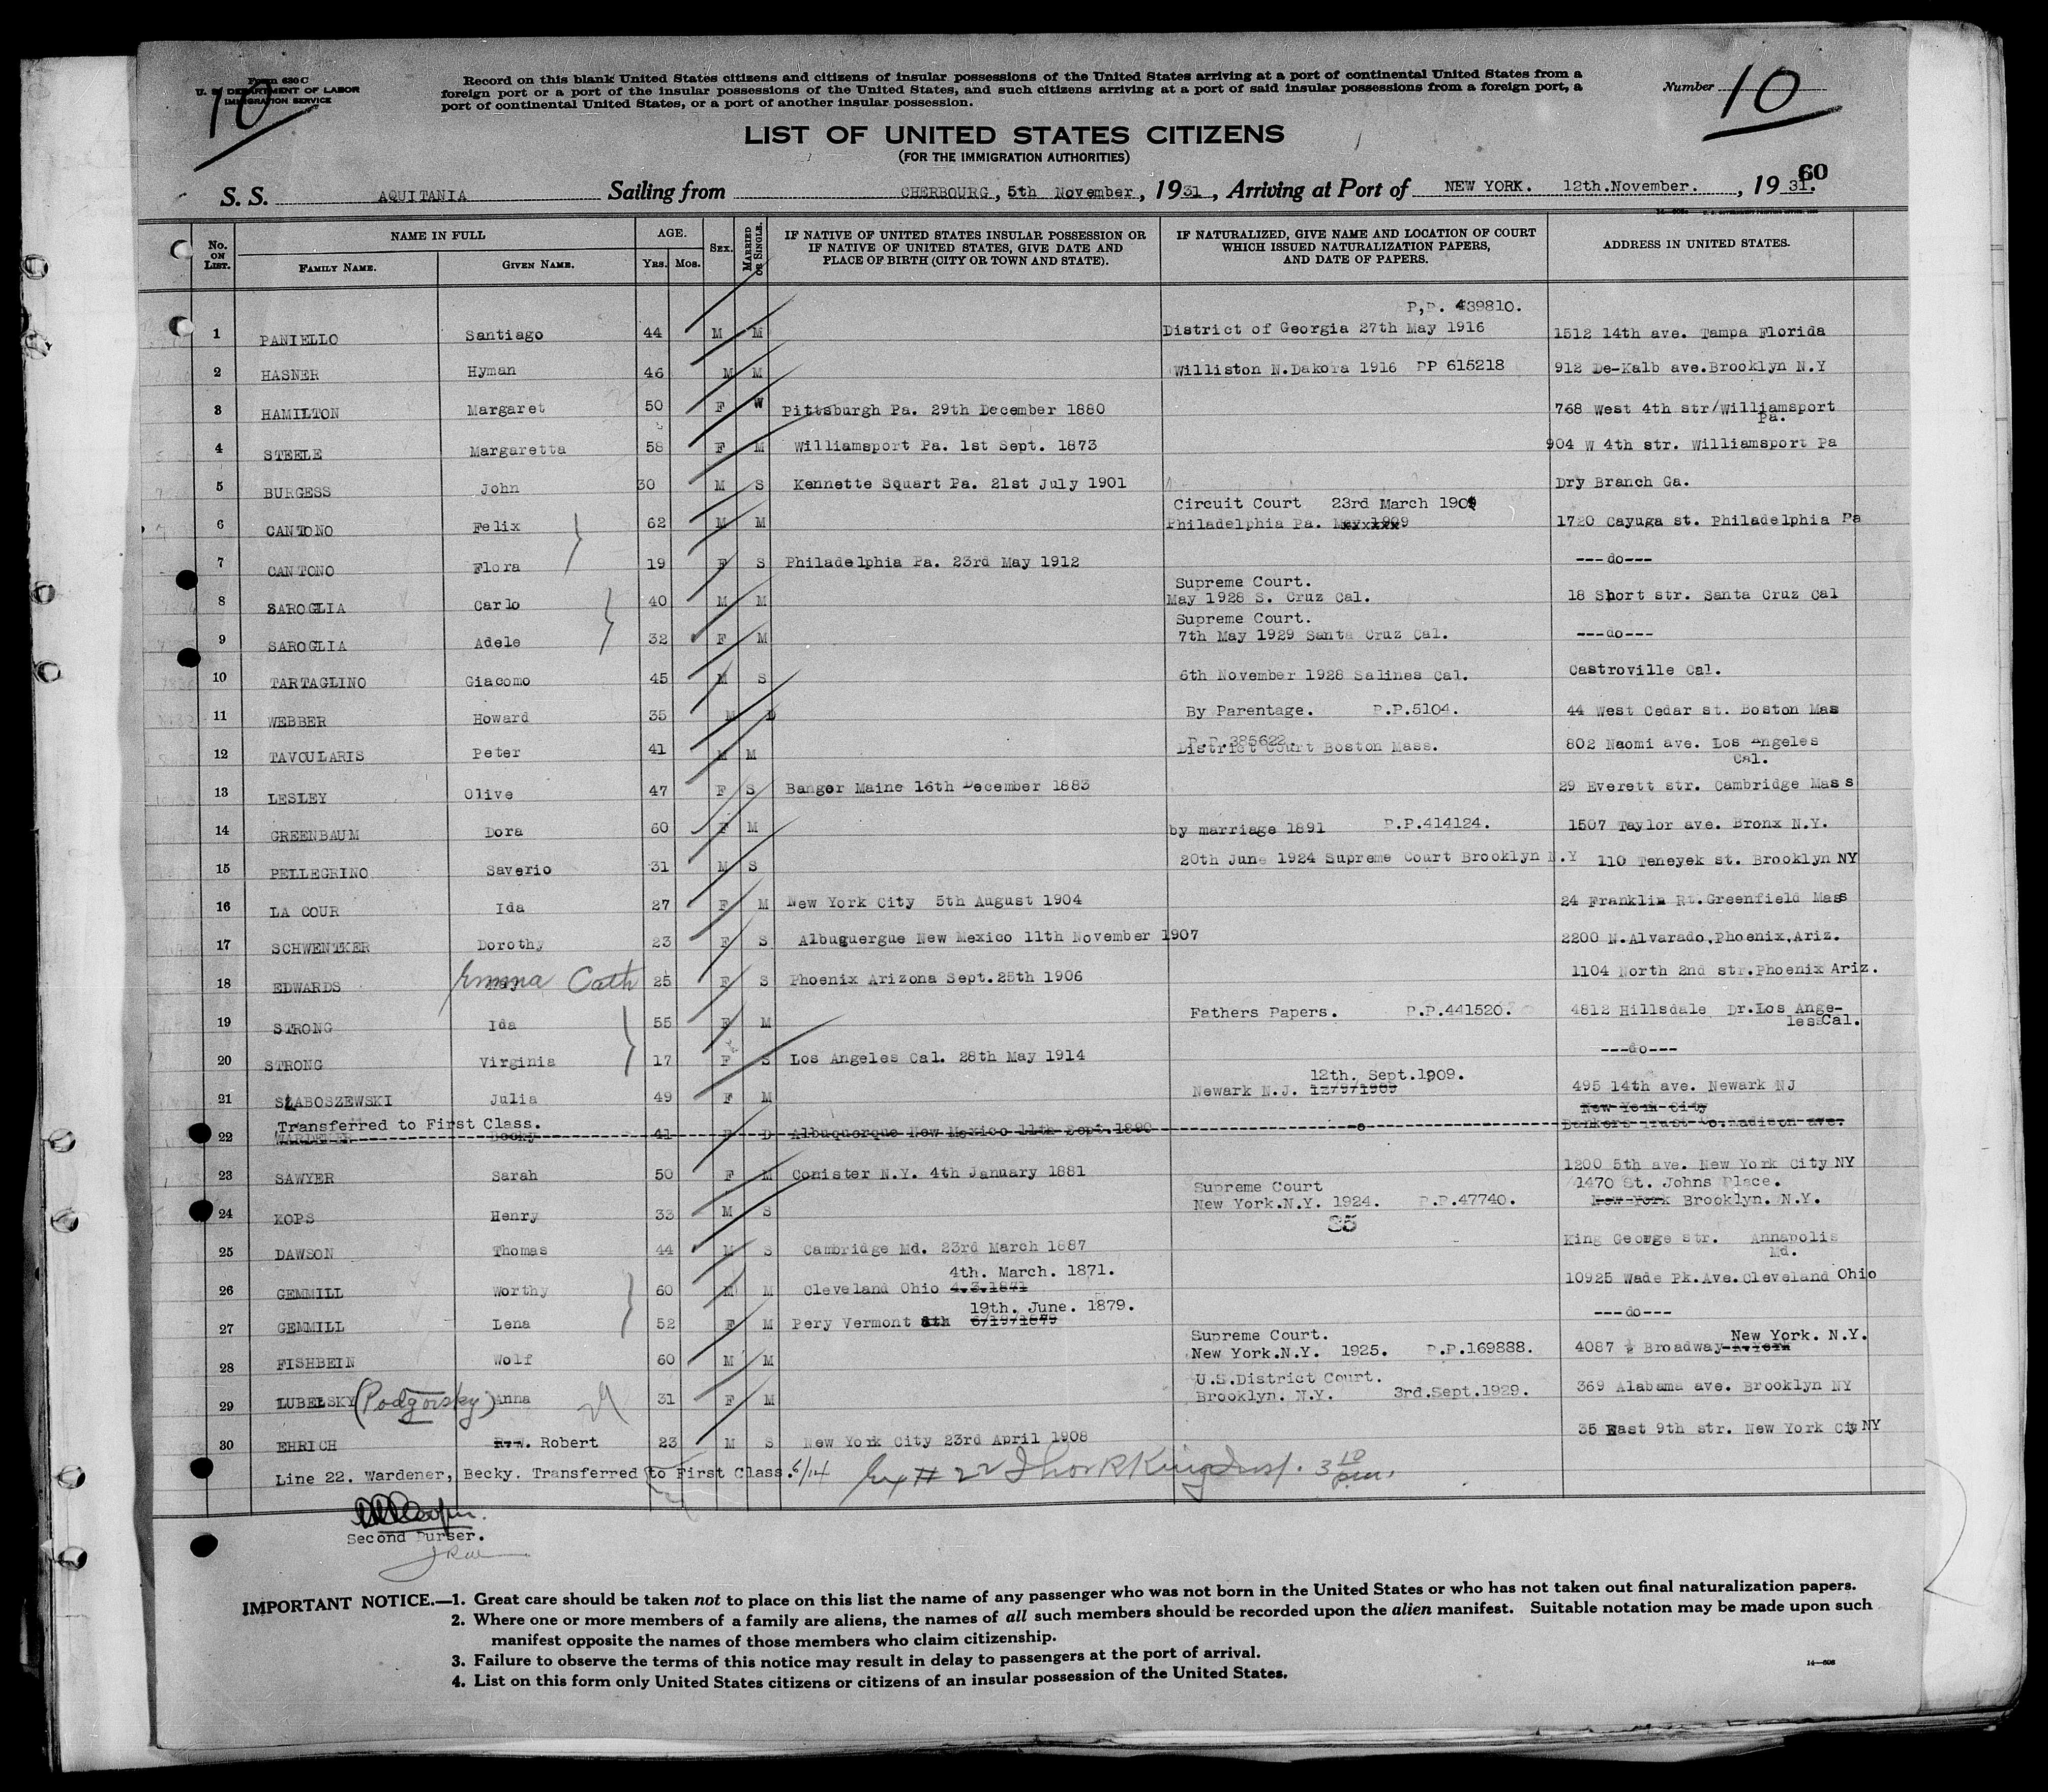 Form 630 C
U. S. DEPARTMENT OF LABOR
IMMIGRATION SERVICE
10
Record on this blank United States citizens and citizens of insular possessions of the United States arriving at a port of continental United States from a
foreign port or a port of the insular possessions of the United States, and such citizens arriving at a port of said insular possessions from a foreign port, a
port of continental United States, or a port of another insular possession.
Number 10
LIST OF UNITED STATES CITIZENS
(FOR THE IMMIGRATION AUTHORITIES)
60
S. S. AQUITANIA Sailing from CHERBOURG, 5th November, 1931, Arriving at Port of NEW YORK. 12th.November. , 1931.
No. ON LIST. NAME IN FULL FAMILY NAME. GIVEN NAME. AGE. YRS. MOS. SEX. MARRIED OR SINGLE. IF NATIVE OF UNITED STATES INSULAR POSSESSION OR IF NATIVE OF UNITED STATES, GIVE DATE AND PLACE OF BIRTH (CITY OR TOWN AND STATE). IF NATURALIZED, GIVE NAME AND LOCATION OF COURT WHICH ISSUED NATURALIZATION PAPERS, AND DATE OF PAPERS. ADDRESS IN UNITED STATES.
P,P. 439810.
1 PANIELLO Santiago 44 M M District of Georgia 27th May 1916 1512 14th ave. Tampa Florida
2 HASNER Hyman 46 M M Williston N.Dakora 1916 PP 615218 912 De-Kalb ave.Brooklyn N.Y
3 HAMILTON Margaret 50 F W Pittsburgh Pa. 29th December 1880 768 West 4th str/Williamsport
Pa.
4 STEELE Margaretta 58 F M Williamsport Pa. 1st Sept. 1873 904 W 4th str. Williamsport Pa
5 BURGESS John 30 M S Kennette Squart Pa. 21st July 1901 Dry Branch Ga.
Circuit Court 23rd March 1909
6 CANTONO Felix 62 M M Philadelphia Pa. May 1909 1720 Cayuga st. Philadelphia Pa
7 CANTONO Flora 19 F S Philadelphia Pa. 23rd May 1912 ---do---
Supreme Court.
8 SAROGLIA Carlo 40 M M May 1928 S. Cruz Cal. 18 Short str. Santa Cruz Cal
Supreme Court.
9 SAROGLIA Adele 32 F M 7th May 1929 Santa Cruz Cal. ---do---
10 TARTAGLINO Giacomo 45 M S 6th November 1928 Salines Cal. Castroville Cal.
11 WEBBER Howard 35 M D By Parentage. P.P.5104. 44 West Cedar st. Boston Mas
P.P.385622.
12 TAVOULARIS Peter 41 M M District Court Boston Mass. 802 Naomi ave. Los Angeles
Cal.
13 LESLEY Olive 47 F S Bangor Maine 16th December 1883 29 Everett str. Cambridge Mass
14 GREENBAUM Dora 60 F M by marriage 1891 P.P.414124. 1507 Taylor ave. Bronx N.Y.
15 PELLEGRINO Saverio 31 M S 20th June 1924 Supreme Court Brooklyn N.Y 110 Teneyek st. Brooklyn NY
16 LA COUR Ida 27 F M New York City 5th August 1904 24 Franklin Rt.Greenfield Mass
17 SCHWENTKER Dorothy 23 F S Albuguergue New Mexico 11th November 1907 2200 N.Alvarado,Phoenix,Ariz.
18 EDWARDS Emma Cath 25 F S Phoenix Arizona Sept.25th 1906 1104 North 2nd str.Phoenix Ariz.
19 STRONG Ida 55 F M Fathers Papers. P.P.441520. 4812 Hillsdale Dr.Los Ange-
les Cal.
20 STRONG Virginia 17 F S Los Angeles Cal. 28th May 1914 ---do---
12th. Sept.1909.
21 SLABOSZEWSKI Julia 49 F M Newark N.J. 12/9/1909 495 14th ave. Newark NJ
Transferred to First Class. New York City
22 WARDENER Becky 41 F D Albuquerque New Mexico 11th Sept.1890 Bankers Trust Co.Madison ave.
23 SAWYER Sarah 50 F M Conister N.Y. 4th January 1881 1200 5th ave. New York City NY
Supreme Court 1470 St. Johns Place.
24 KOPS Henry 33 M S New York.N.Y. 1924. P.P.47740. New York Brooklyn. N.Y.
25 DAWSON Thomas 44 M S Cambridge Md. 23rd March 1887 King George str. Annapolis
Md.
4th. March. 1871.
26 GEMMILL Worthy 60 M M Cleveland Ohio 4.3.1871 10925 Wade Pk.Ave.Cleveland Ohio
19th. June. 1879.
27 GEMMILL Lena 52 F M Pery Vermont 6/19/1879 ---do---
Supreme Court. New York. N.Y.
28 FISHBEIN Wolf 60 M M New York.N.Y. 1925. P.P.169888. 4087 ½ Broadway N.York
U.S.District Court.
29 LUBELSKY (Podgorsky) Anna 31 F M Brooklyn. N.Y. 3rd.Sept.1929. 369 Alabama ave. Brooklyn NY
30 EHRICH R.W. Robert 23 M S New York City 23rd April 1908 35 East 9th str. New York City NY
Line 22. Wardener, Becky. Transferred to First Class. Ex # 22 King Insp. 3 10 pm.
Second Purser.
IMPORTANT NOTICE.—1. Great care should be taken not to place on this list the name of any passenger who was not born in the United States or who has not taken out final naturalization papers.
2. Where one or more members of a family are aliens, the names of all such members should be recorded upon the alien manifest. Suitable notation may be made upon such
manifest opposite the names of those members who claim citizenship.
3. Failure to observe the terms of this notice may result in delay to passengers at the port of arrival.
4. List on this form only United States citizens or citizens of an insular possession of the United States.
14—808